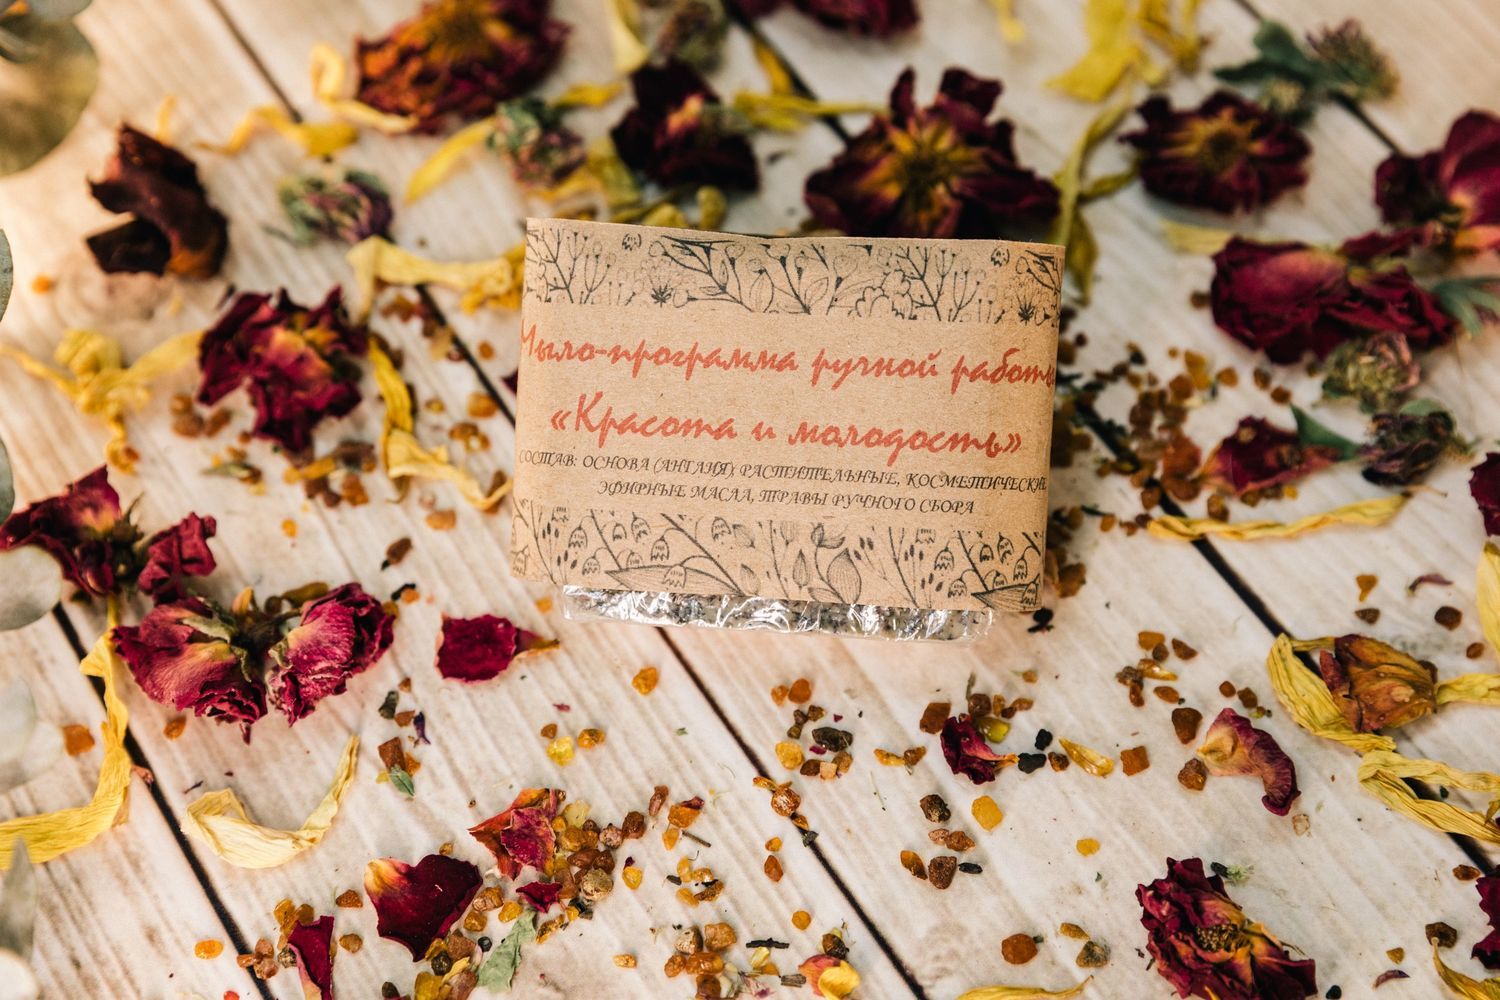 Мыло-программа ручной работы
«Красота и молодость»
СОСТАВ: ОСНОВА (АНГЛИЯ) РАСТИТЕЛЬНЫЕ, КОСМЕТИЧЕСКИЕ
ЭФИРНЫЕ МАСЛА, ТРАВЫ РУЧНОГО СБОРА